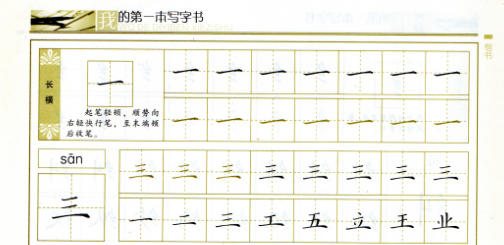 我的第一本写字书
楷书
长横
一
起笔轻顿，顺势向
右轻快行笔，至末端顿
后收笔。
一 一 一 一 一 一 一
一 一 一 一 一 一 一
sān
三
三 三 三 三 三 三 三 三
一 二 三 工 五 立 王 业